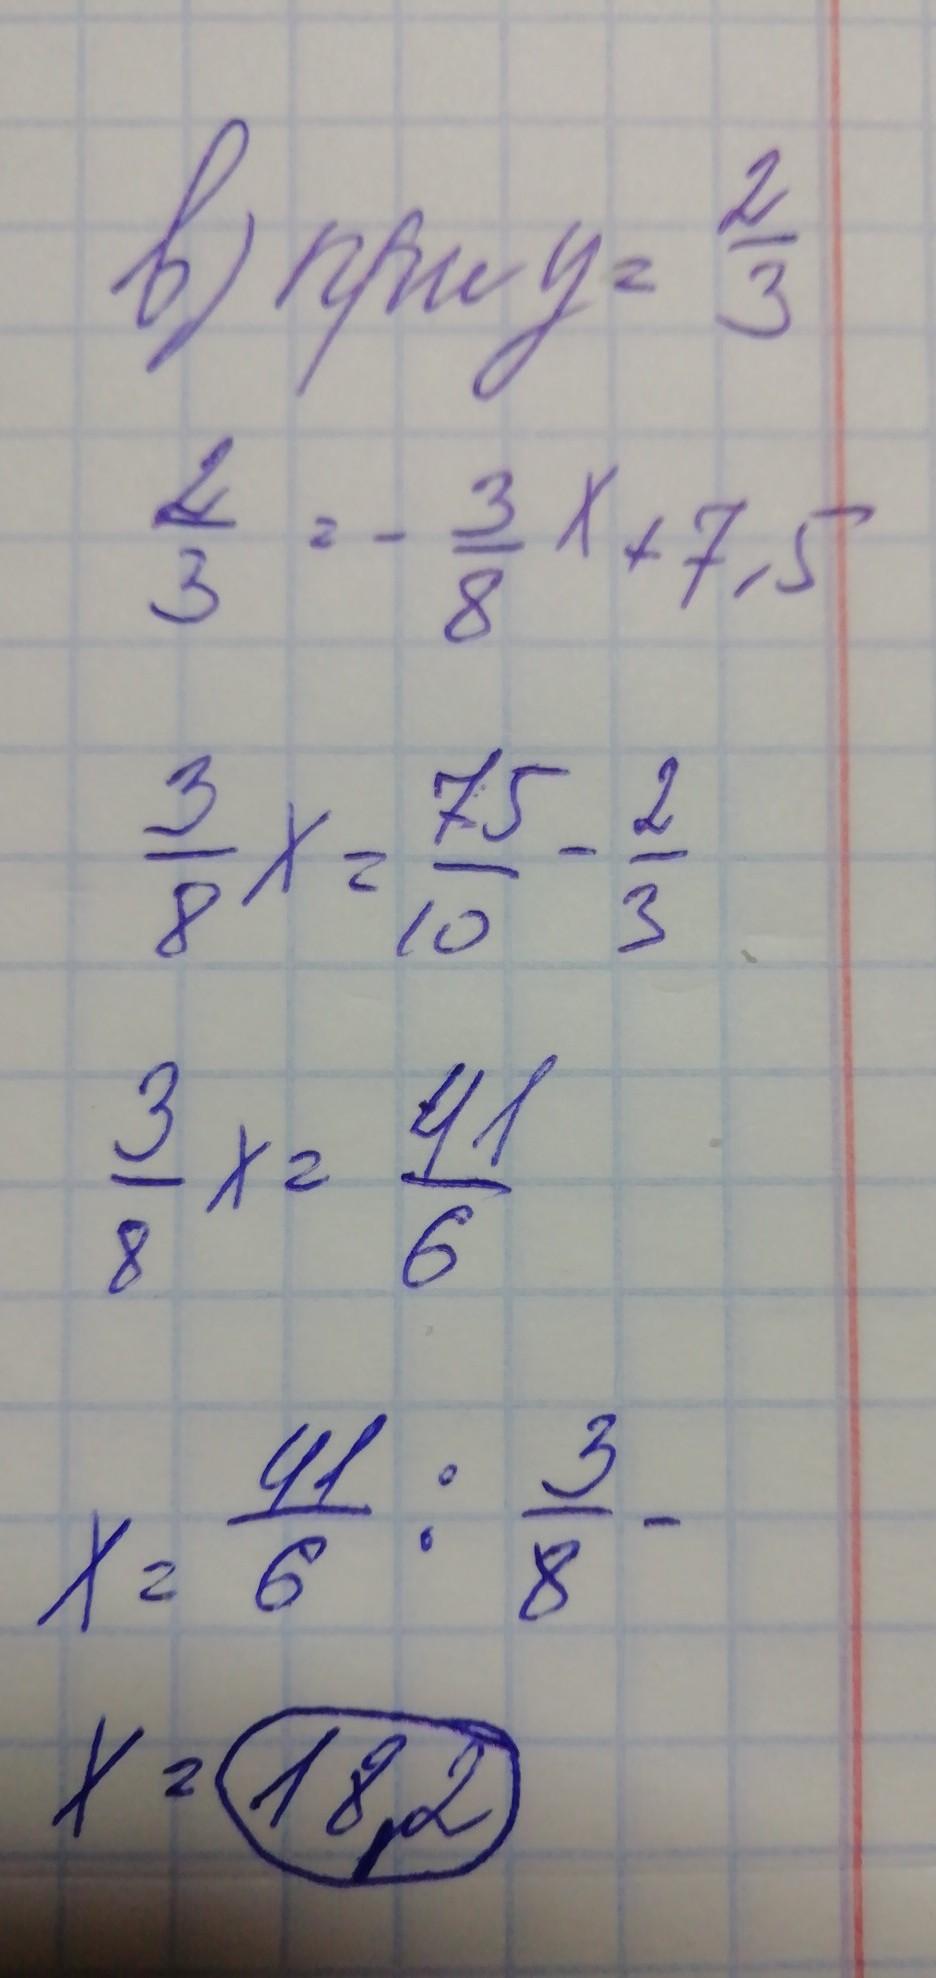 в) при y = 2/3
2/3 = - 3/8 x + 7,5
3/8 x = 75/10 - 2/3
3/8 x = 41/6
x = 41/6 : 3/8 -
x = 18,2